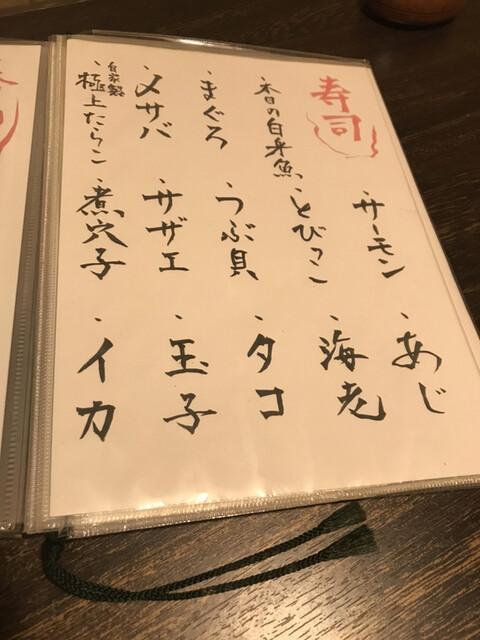 寿司
・本日の白身魚
・まぐろ
・〆サバ
自家製
・極上たらこ
・サーモン
・とびっこ
・つぶ貝
・サザエ
・煮穴子
・あじ
・海老
・タコ
・玉子
・イカ